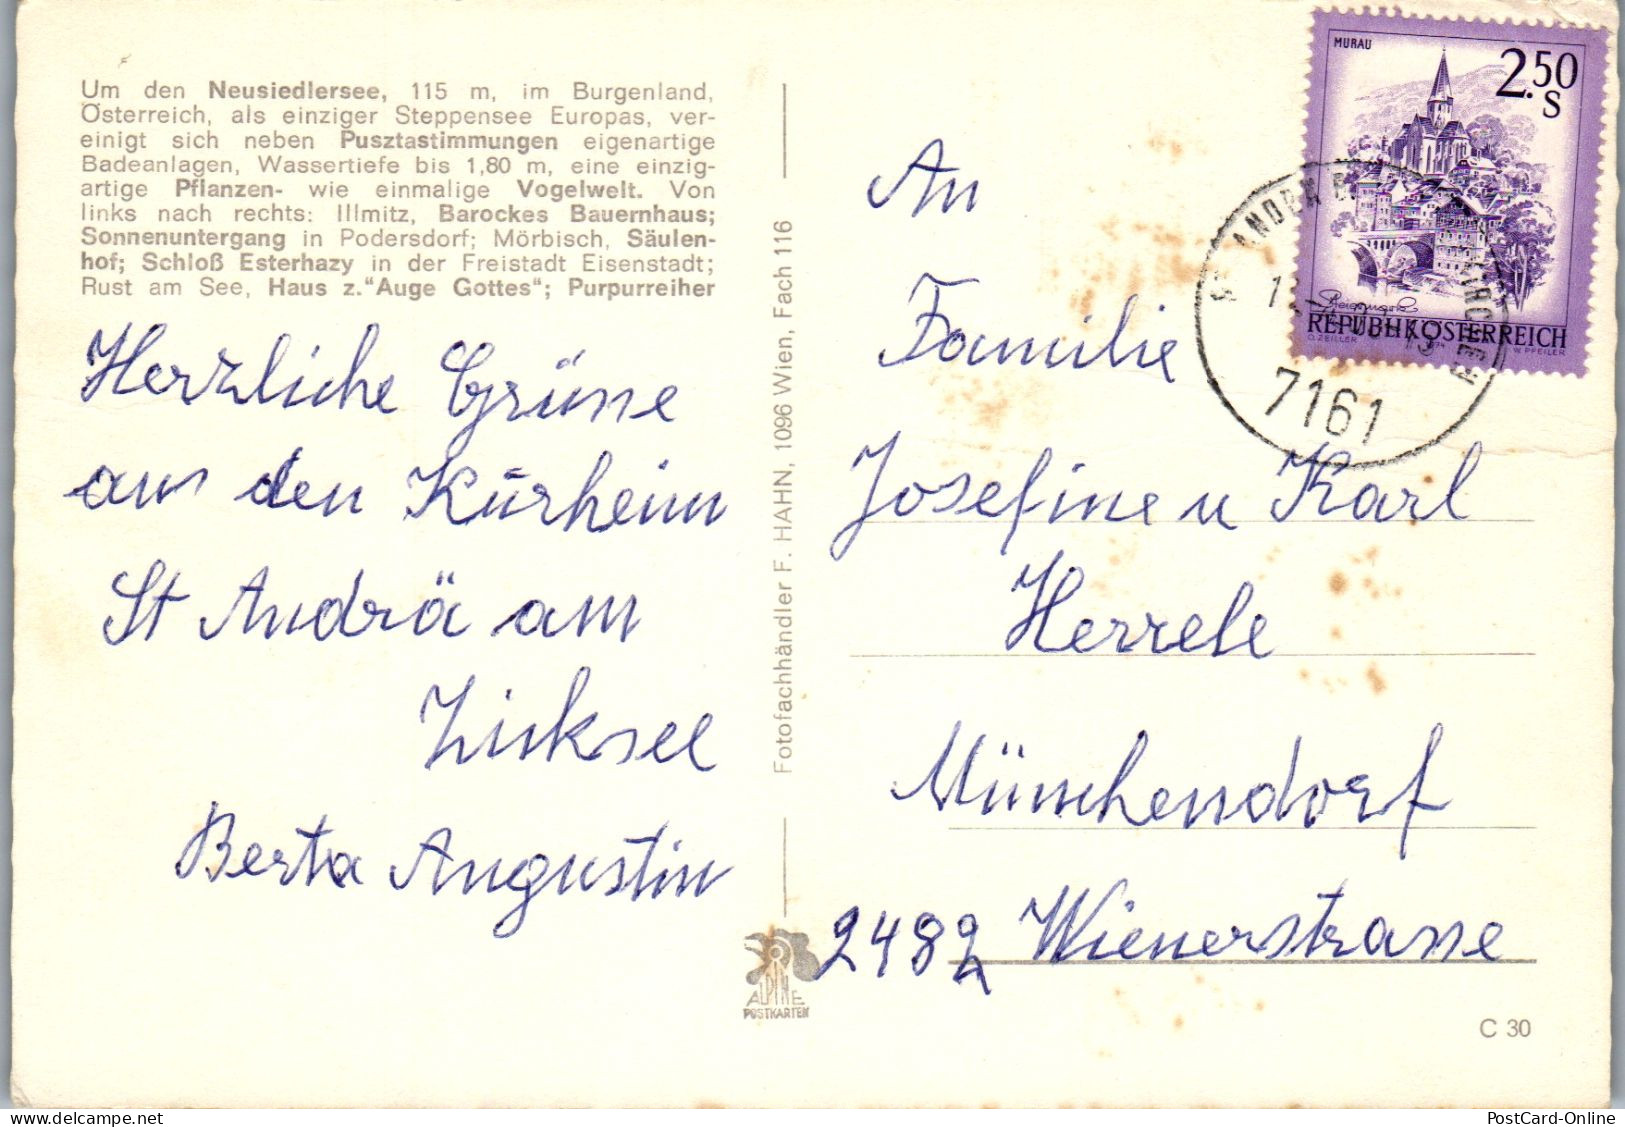 Um den Neusiedlersee, 115 m, im Burgenland,
Österreich, als einziger Steppensee Europas, ver-
einigt sich neben Pusztastimmungen eigenartige
Badeanlagen, Wassertiefe bis 1,80 m, eine einzig-
artige Pflanzen- wie einmalige Vogelwelt. Von
links nach rechts: Illmitz, Barockes Bauernhaus;
Sonnenuntergang in Podersdorf; Mörbisch, Säulen-
hof; Schloß Esterhazy in der Freistadt Eisenstadt;
Rust am See, Haus z."Auge Gottes"; Purpurreiher
Herzliche Grüsse
aus den Kurheim
St Andrä am
Zicksee
Berta Augustin
Fotofachhändler F. HAHN, 1096 Wien, Fach 116
ALPINE
POSTKARTEN
MURAU
2.50
S
Steiermark
REPUBLIK ÖSTERREICH
O. ZEILLER
W. PFEILER
7161
An
Familie
Josefine u Karl
Herrele
Münchendorf
2482 Wienerstrasse
C 30
hw-ansichtskarten.com
PostCard-Online